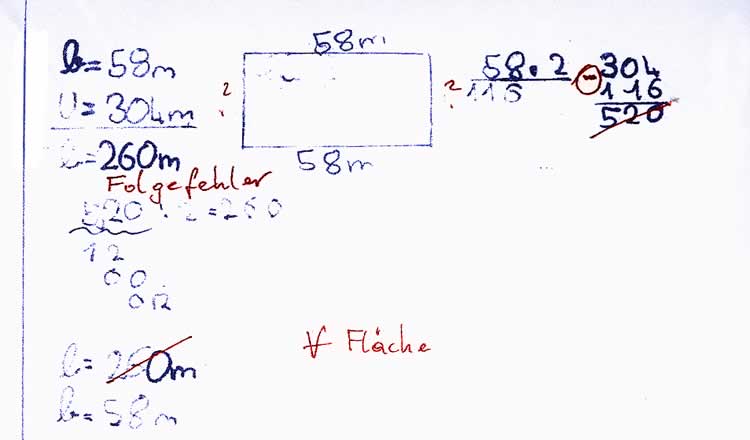 b = 58m
U = 304m
l = 260m
Folgefehler
520 : 2 = 260
12
00
0R
l = 260m
b = 58m
58m
?
?
58m
58 . 2
116
- 304
116
520
∀ Fläche